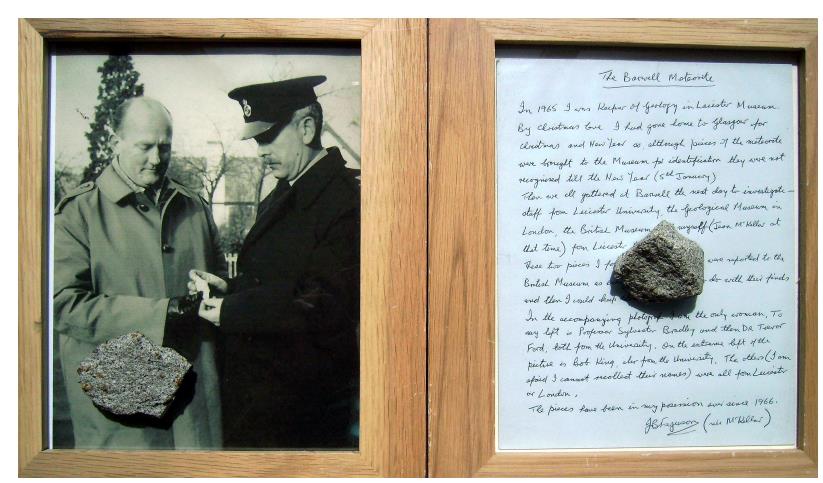 The Barwell Meteorite
In 1965 I was Keeper of Geology in Leicester Museum.
By Christmas time I had gone home to Glasgow for
Christmas and New Year so although pieces of the meteorite
were brought to the Museum for identification they were not
recognised till the New Year (5th January)
Then we all gathered at Barwell the next day to investigate —
staff from Leicester University, the Geological Museum in
London, the British Museum myself (Jean McKellar at
that time) from Leicester
These two pieces I were reported to the
British Museum as do with their finds
and then I could keep
In the accompanying the only woman. To
my left is Professor Sylvester Bradley and then Dr Trevor
Ford, both from the University. On the extreme left of the
picture is Bob King, also from the University. The others (I am
afraid I cannot recollect their names) were all from Leicester
or London.
The pieces have been in my posession ever since 1966.
Ferguson (née McKellar)